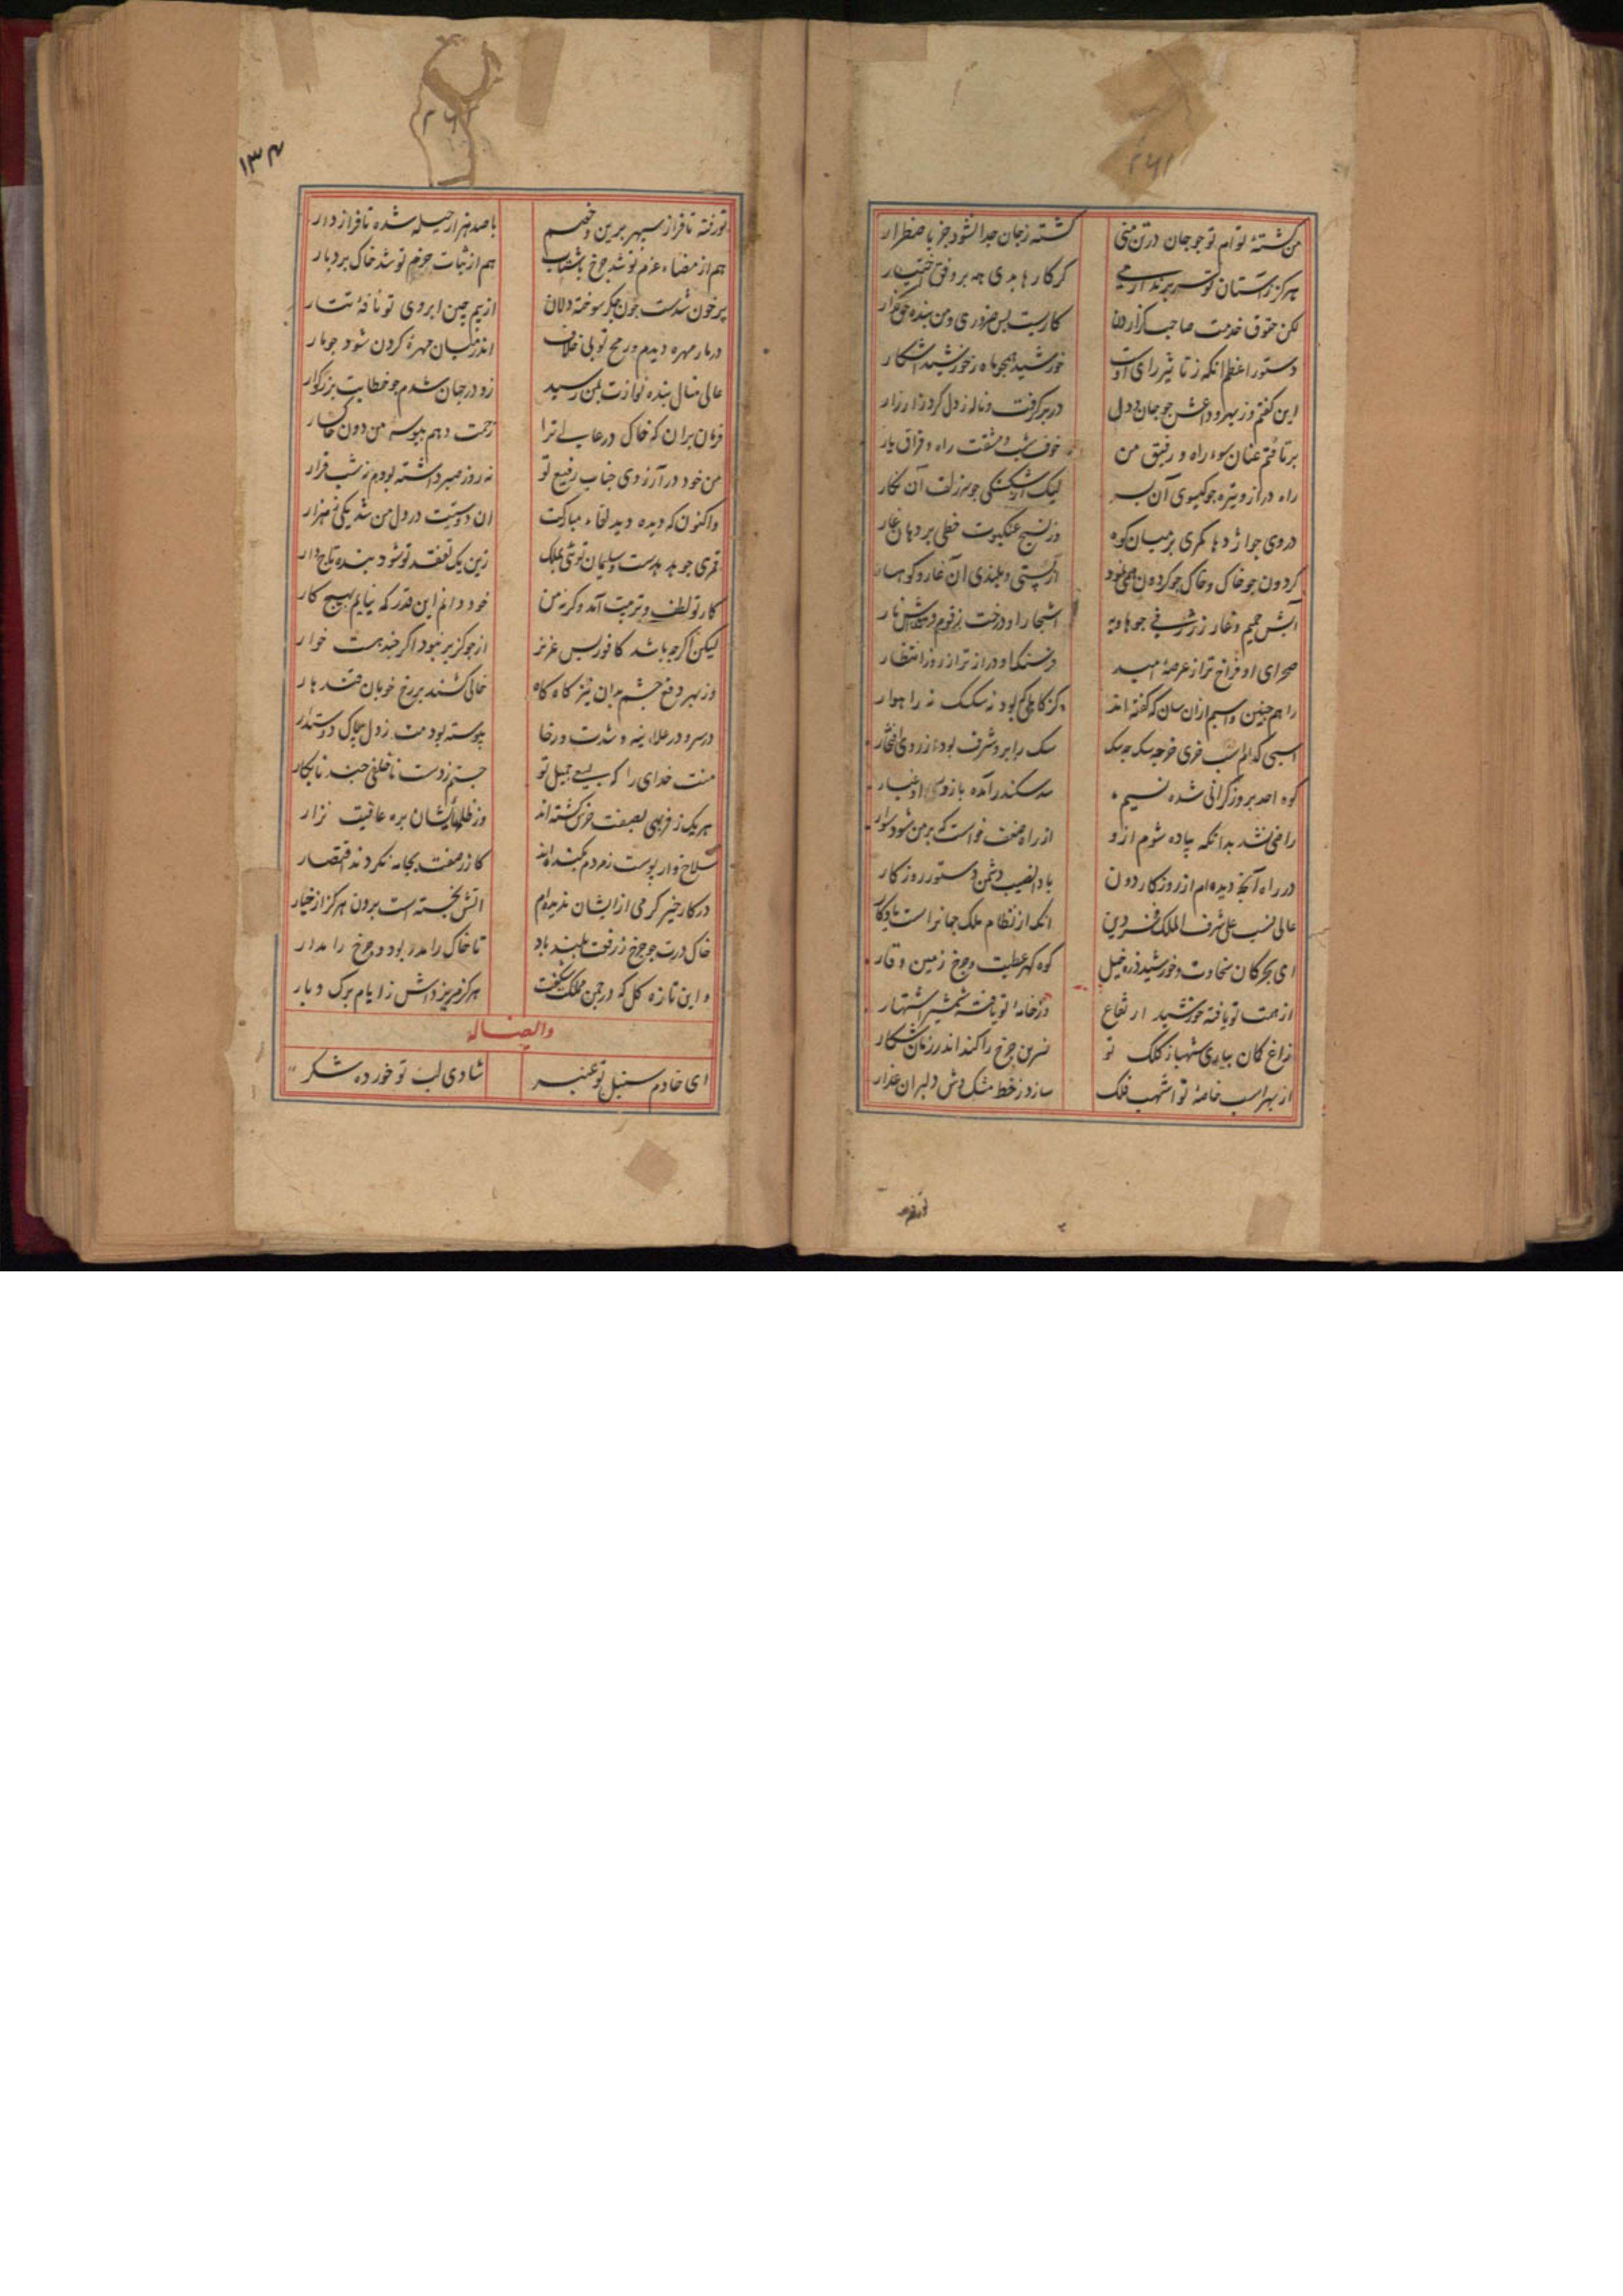 ۲۶۱
من کشتهٔ توام تو جو جان در تن منی کشته ز جان جدا نشود جز باضطرار
هرکز ز آستان تو سر برندارمی کر کارها بدی همه بر وفق اختیار
لکن حقوق خدمت صاحب کزاردن کاریست بس ضروری و من بنده حق کزار
دستور اعظم انکه ز تاثیر رای اوست خورشید همجو ماه ز خورشید اشکار
این کفتم وز بهر وداعش جو جان و دل در بر کرفت و ناله ز دل کرد زار زار
برتافتم عنان سوء راه و رفیق من خوف شب و مشقت راه و فراق یار
راه دراز و تیره جو کیسوی آن بسر لیک از شکستکی جو سر زلف آن نکار
در وی جو اژدها کمری بر میان کوه وز نسج عنکبوت خطی بر دهان غار
کردون جو خاک و خاک جو کردون همی نمود از پستی و بلندی آن غار و کوهسار
آبش حمیم و غار ز ژرفی جو هاویه اشجار او درخت زقوم و
صحرای او فراخ تر از عرصهٔ امید فرسنکها و دراز تر از روز انتظار
راهم جنین و اسبم از ان سان که کفته اند کز کاهلی کم بود نه سکسک نه راهوار
اسبی که ام اسب خری خر جه سک جه سک سک را برو شرف بود از روی افتخار
کوه احد بروز کرانی شده نسیم سد سکندر آمده با زوی او غبار
راضی نشد بدانکه پیاده شوم ازو از راه ضعف خواست که بر من شود سوار
در راه آنجه دیده ام از روزکار دون باد انصیب دشمن دستور روزکار
عالی نسب علی شرف الملک فخر دین انکه از نظام ملک جهانرا است یادکار
ای بحر کان سخاوت و خورشید ذره خیل کوه کهر عطیت و جرخ زمین وقار
از همت تو یافته خورشید ارتفاع وز خامهٔ تو یافته شمشیر اشتهار
زاغ کمان بیاری شهباز کلک تو نسرین جرخ را کند اندر زمان شکار
از بهر اسب خامهٔ تو اشهب فلک سازد ز خط مشک وش دلبران عذار
تو رفته
۱۳۴
تو رفته تا فراز سپهر برین و خصم با صد هزار حیله شده تا فراز دار
هم از مضاء عزم تو شد جرخ با شتاب هم از ثبات حزم تو شد خاک بردبار
پر خون شدست جون جکر سوخته دلان از بیم جین ابروی تو نافهٔ تتار
در مار مهره دیدم و رمح تو بی خلاف اندر میان مهرهٔ کردن شود جو مار
عالی مثال بنده نوازت بمن رسید زو در جهان شدم جو خطابت بزرکوار
فرمان بران که خاک در عالی ترا زحمت دهم ببوسه من دون خاکسار
من خود در آرزوی جناب رفیع تو نه روز صبر داشته بودم نه شب قرار
واکنون که دیده دید لقاء مبارکت ان دوستیت در دل من شد یکی هزار
قمری جو هدهدست و سلیمان توئی بملک زین یک تفقد تو شود بنده تاج دار
کار تو لطف و تربیت آمد وکرنه من خود دانم این قدر که نیایم بهیج کار
لیکن اکرجه باشد کافور بس عزیز از جو کزیر نبود اکر جند هست خوار
وز بهر دفع جشم بدان نیز کاه کاه خالی کشند بر رخ خوبان قندهار
در سر و در علانیه و شدت و رخا پیوسته بود مت ز دل پاک دوستدار
منت خدای را که بسعی جمیل تو جستم ز دست ناخلفی جند نابکار
هر یک ز فربهی بصفت خرس کشته اند وز ظلمهایشان بره عافیت نزار
سلاخ وار پوست ز مردم بکنده اند کازر صفت بجامه نکردند اقتصار
در کار خیر کرمی از ایشان ندیده ام
خاک درت جو جرخ ز رفعت بلند باد تا خاک را مدر بود و جرخ را مدار
و این تازه کل که در جمن ملک بشکفت هرکز مریزدش ز ایام برک و بار
وایضاله
ای خادم سنبل تو عنبر شادی لب تو خورده شکر